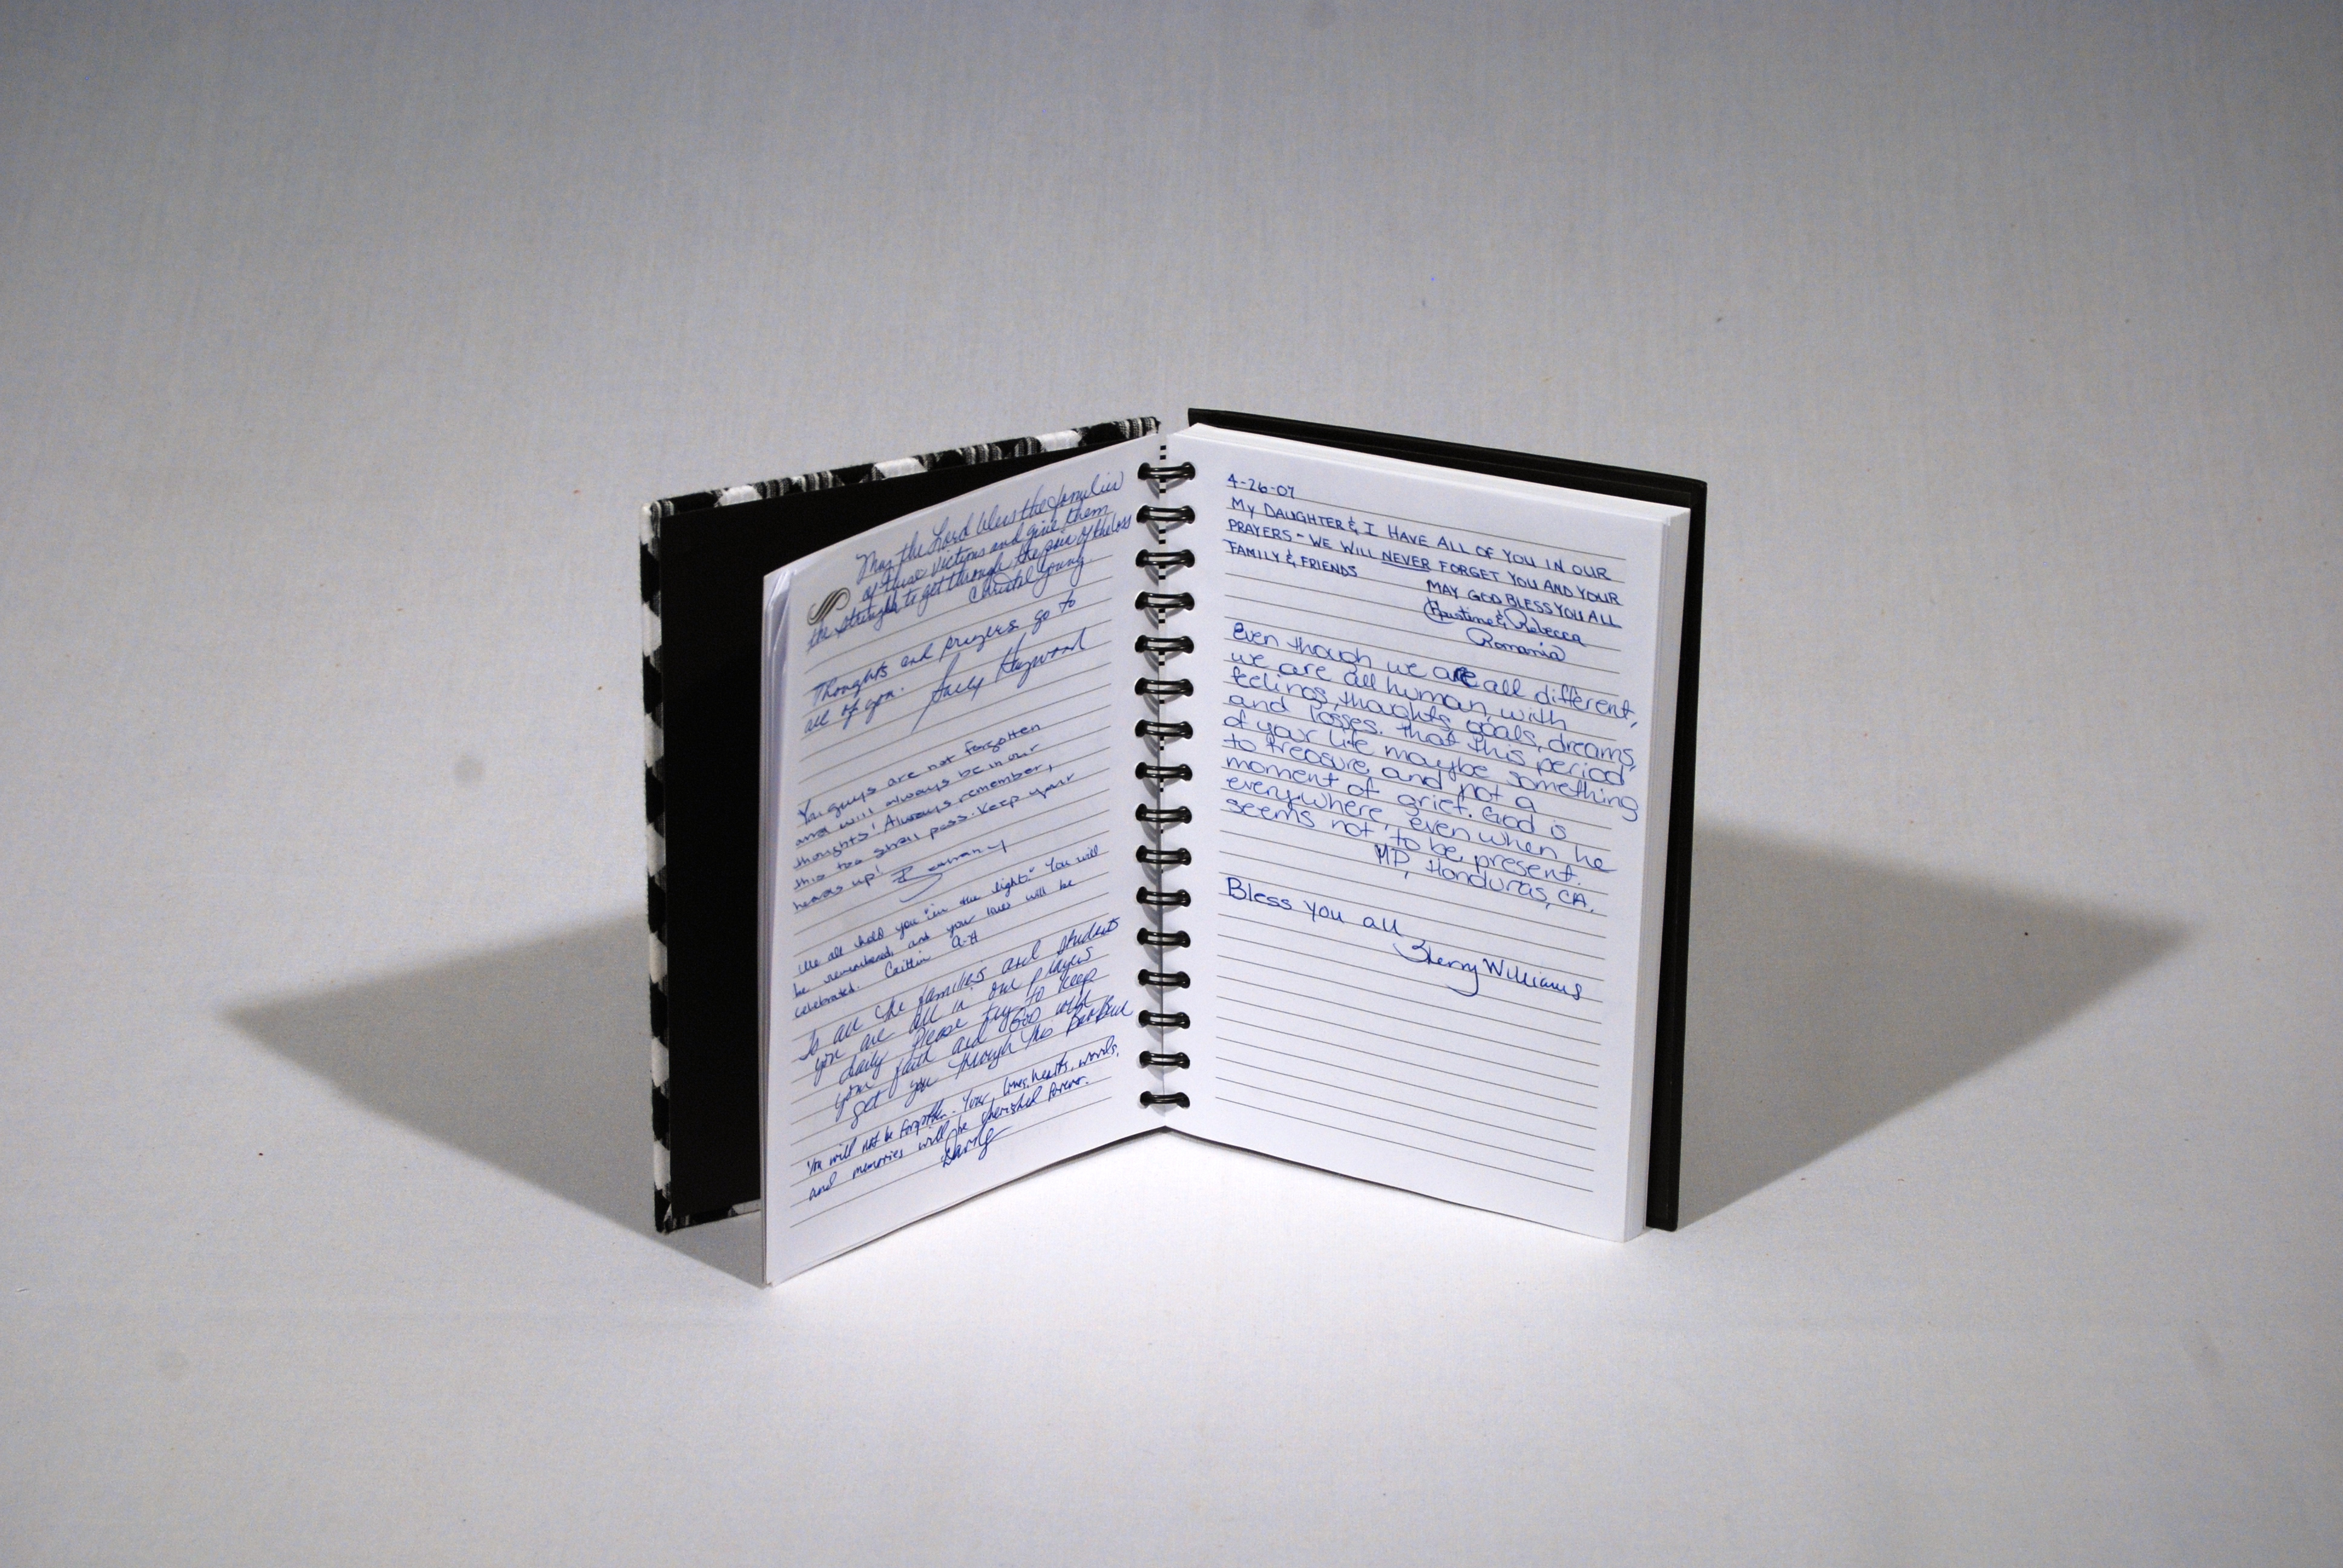 May the Lord bless the families
of these victims and give them
the strength to get through the pain of the loss
Christal Young
Thoughts and prayers go to
all of you. Haywood
You guys are not forgotten
and will always be in our
thoughts! Always remember,
this too shall pass. Keep your
heads up!
Bethany
We all hold you "in the light." You will
be remembered, and your lives will be
celebrated. Caitlin
To all the families and students
you are all in our prayers
daily Please try to keep
your faith and God will
get you through this
You will not be forgotten. Your lives, hearts, words,
and memories will be cherished forever.
4-26-07
MY DAUGHTER & I HAVE ALL OF YOU IN OUR
PRAYERS - WE WILL NEVER FORGET YOU AND YOUR
FAMILY & FRIENDS
MAY GOD BLESS YOU ALL
& Rebecca
Romania
Even though we are all different,
we are all human, with
feelings, thoughts, goals, dreams,
and losses. That this period
of your life maybe something
to treasure, and not a
moment of grief. God is
everywhere, even when he
seems not to be present.
MP, Honduras, CA.
Bless you all
Sherry Williams